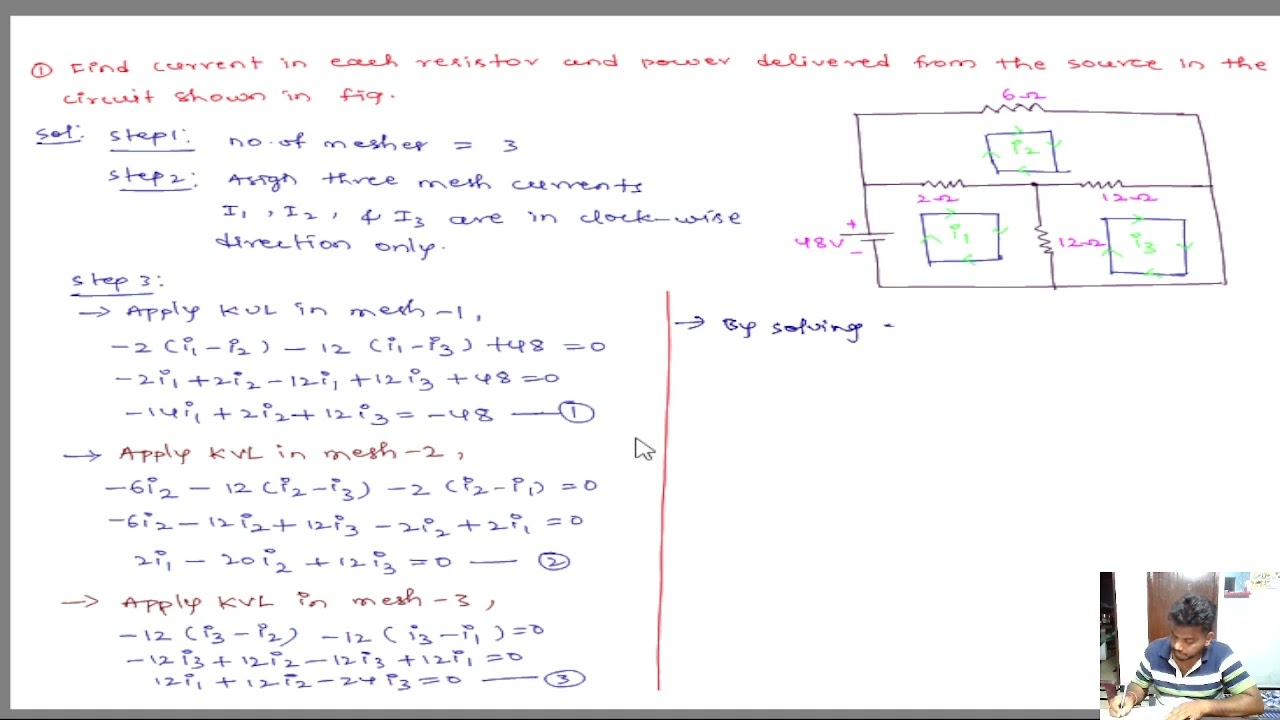 ① Find current in each resistor and power delivered from the source in the
circuit shown in fig.
Sol: Step1: no. of meshes = 3
Step2: Asign three mesh currents
I₁, I₂, & I₃ are in clock-wise
direction only.
Step 3:
→ Apply KVL in mesh-1,
-2(i₁-i₂) - 12(i₁-i₃) +48 = 0
-2i₁ +2i₂ -12i₁ +12i₃ +48 = 0
-14i₁ + 2i₂ + 12i₃ = -48 — ①
→ Apply KVL in mesh-2,
-6i₂ - 12(i₂-i₃) -2(i₂-i₁) = 0
-6i₂ - 12i₂ + 12i₃ - 2i₂ + 2i₁ = 0
2i₁ - 20i₂ + 12i₃ = 0 — ②
→ Apply KVL in mesh-3,
-12(i₃-i₂) -12(i₃-i₁) = 0
-12i₃ + 12i₂ - 12i₃ + 12i₁ = 0
12i₁ + 12i₂ - 24i₃ = 0 — ③
6Ω
i₂
2Ω
12Ω
+
48V
-
i₁
12Ω
i₃
→ By solving -